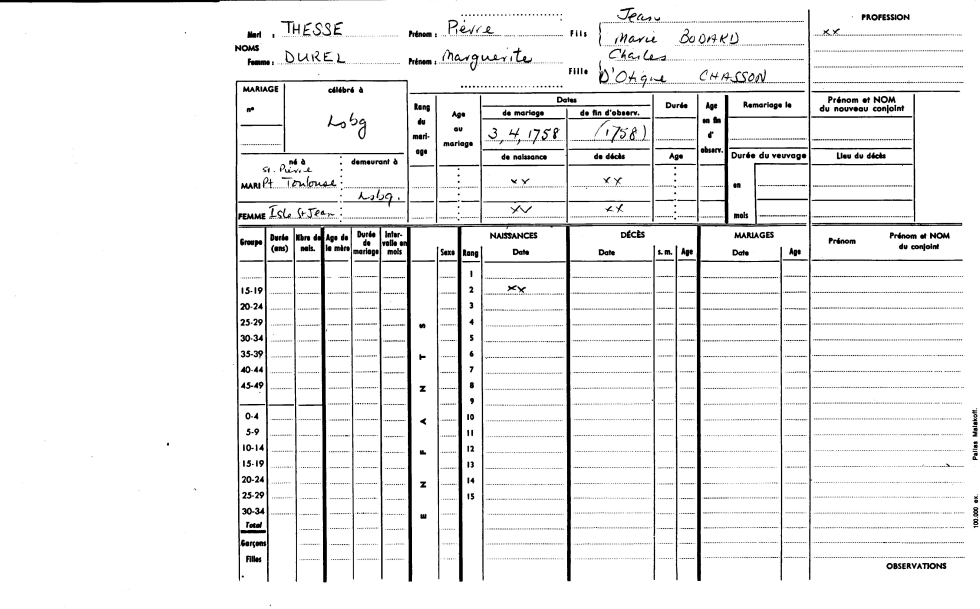 Mari : THESSE Prénom : Pièrre Fils Jean PROFESSION
Marie BODARD xx
NOMS
Femme : DUREL Prénom : Marguerite Fille Charles
D'Otique CHASSON
MARIAGE célébré à Rang du mari-age Age au mariage Dates Durée Age en fin d' observ. Remariage le Prénom et NOM du nouveau conjoint
n° Lsbg de mariage de fin d'observ.
3, 4, 1758 (1758)
né à demeurant à de naissance de décès Age Durée du veuvage Lieu du décès
St. Pièrre
MARI Pt Toulouse Lsbg. xx xx en
FEMME Isle St Jean xx xx mois
Groupe Durée (ans) Nbre de nais. Age de la mère Durée de mariage Inter-valle en mois ENFANTS NAISSANCES DÉCÈS MARIAGES Prénom Prénom et NOM du conjoint
Sexe Rang Date Date s. m. Age Date Age
1
15-19 2 xx
20-24 3
25-29 4
30-34 5
35-39 6
40-44 7
45-49 8
9
0-4 10
5-9 11
10-14 12
15-19 13
20-24 14
25-29 15
30-34
Total
Garçons
Filles
OBSERVATIONS
100.000 ex. Pallas Malakoff.